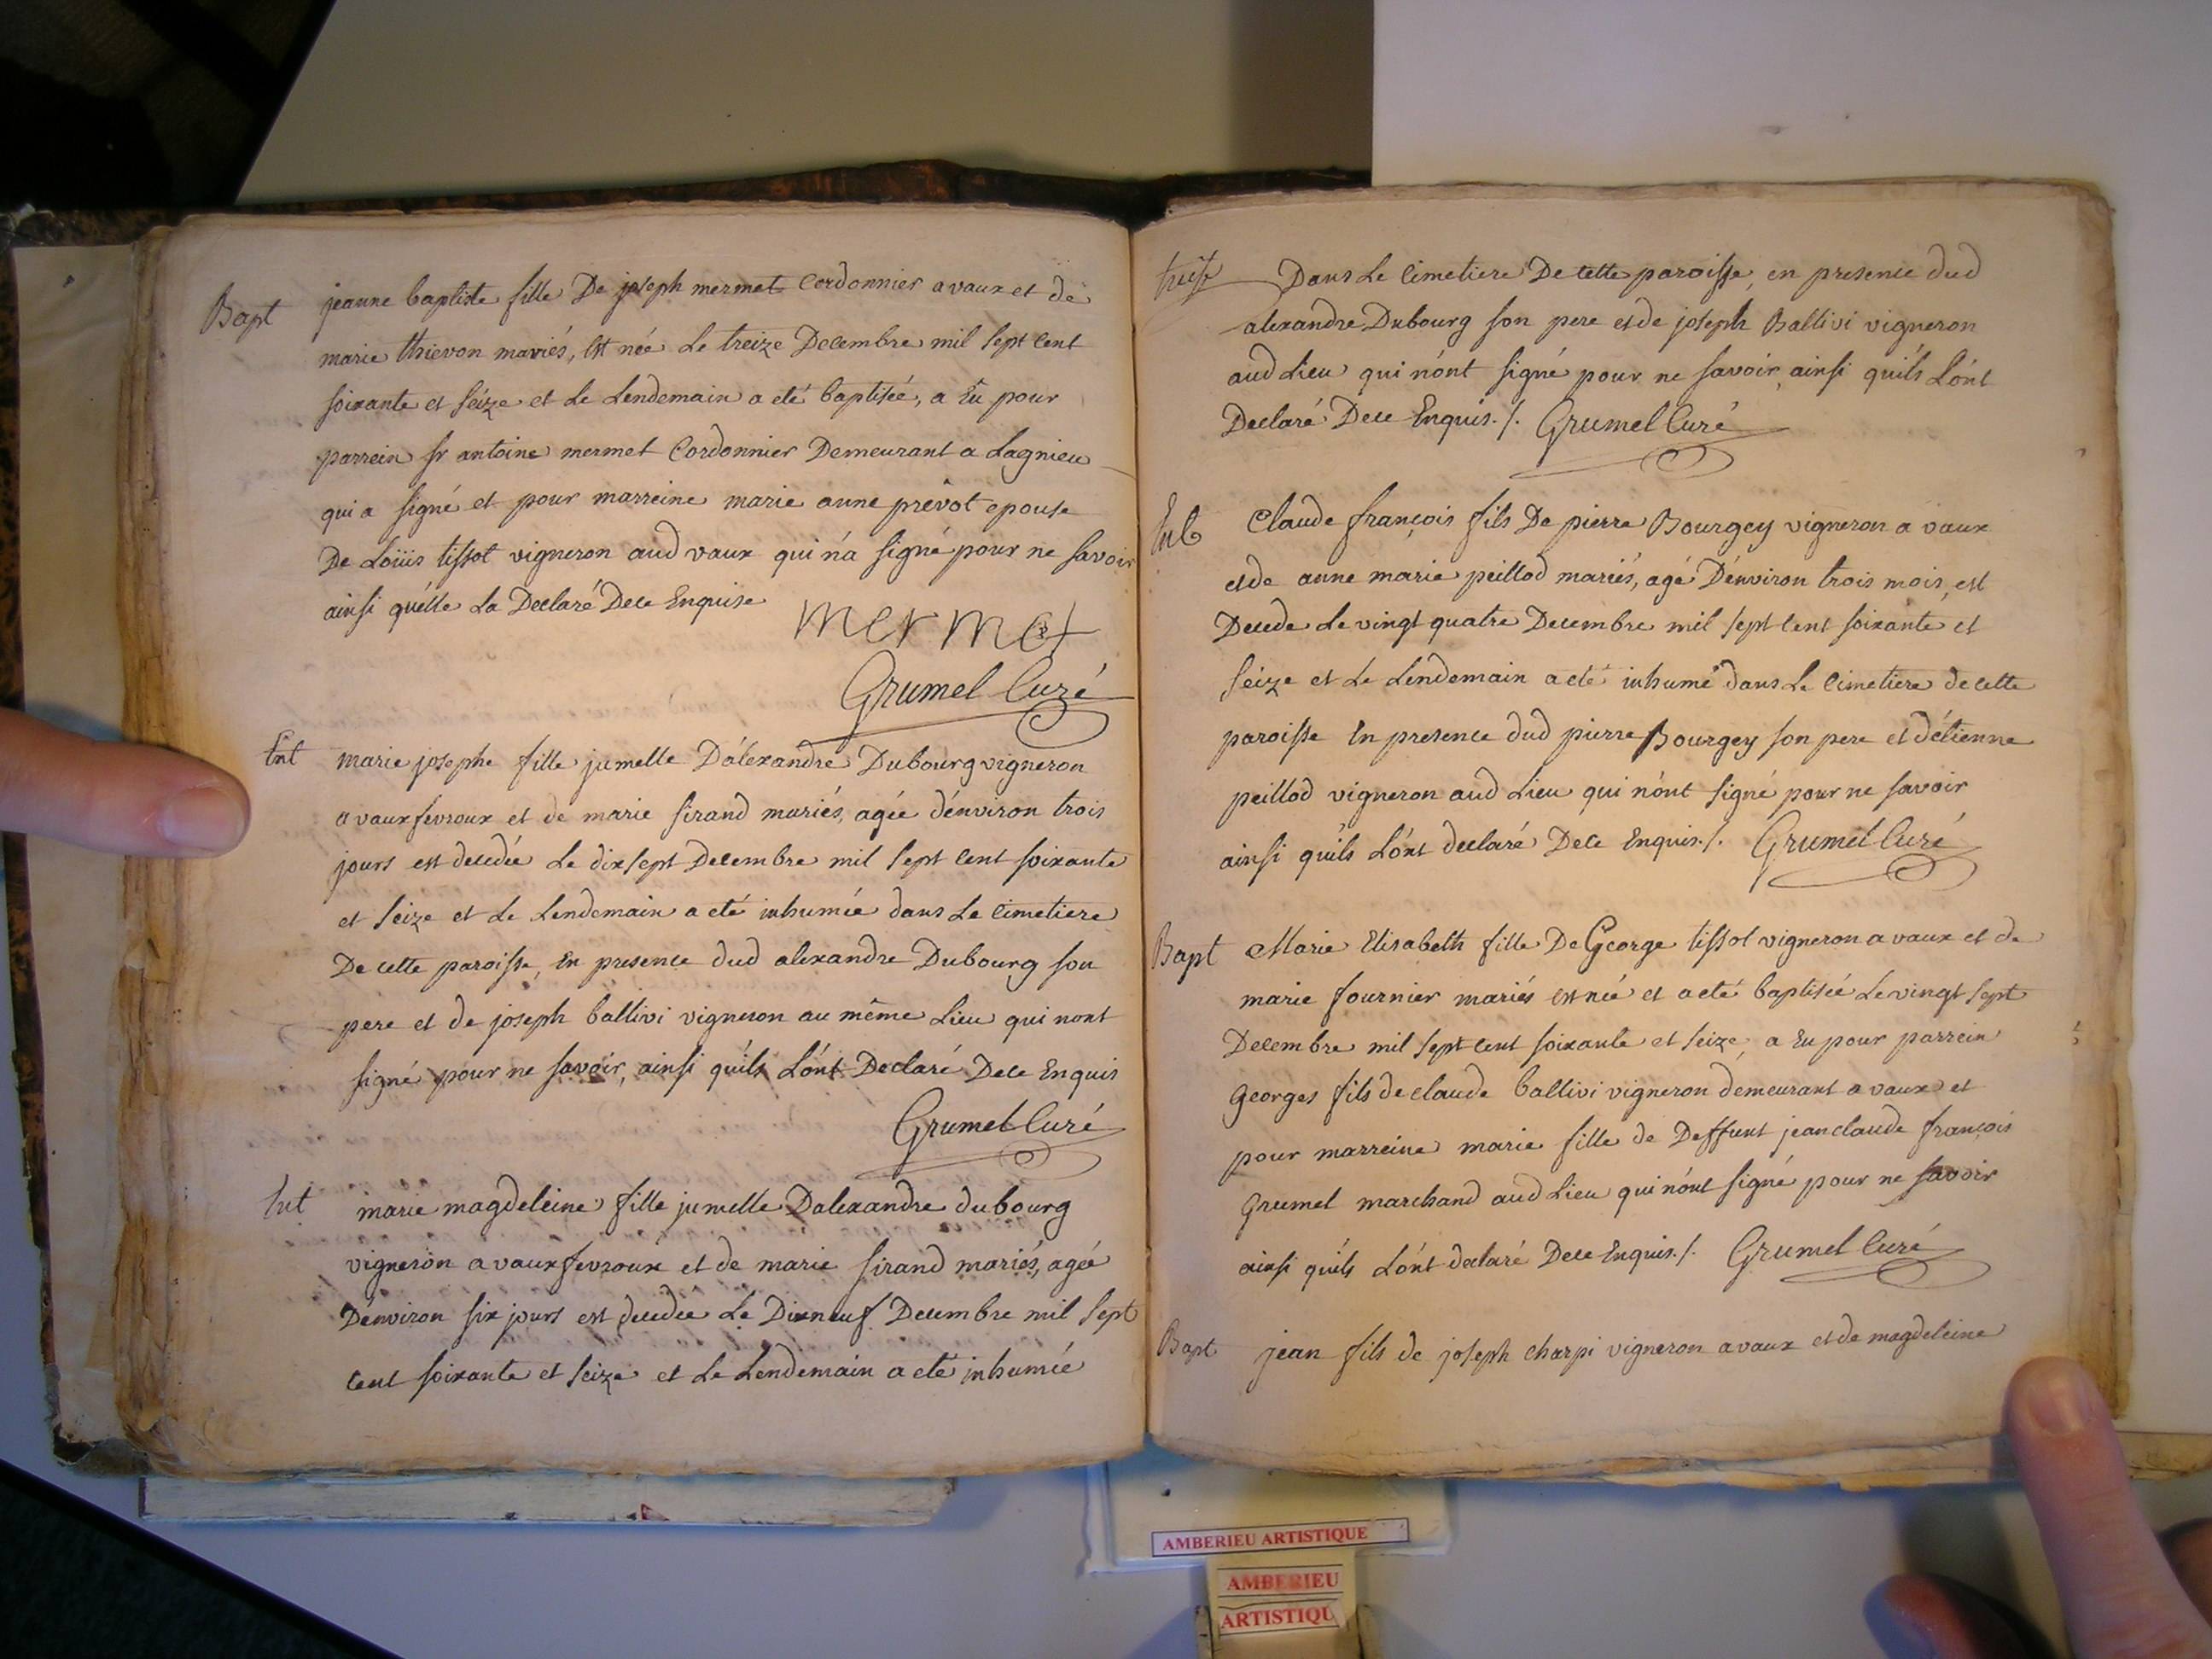 Bapt jeanne baptiste fille De joseph mermet Cordonnier a vaux et de
marie thievon mariés, Est née Le treize Decembre mil sept cent
soixante et seize et Le Lendemain a eté baptisée, a Eu pour
parrein sr antoine mermet Cordonnier Demeurant a Lagnieu
qui a signé et pour marreine marie anne prévot epouse
De Loüis tissot vigneron aud vaux qui n'a signé pour ne savoir
ainsi qu'elle La Declaré Dece Enquise
mermet
Grumel Curé
Ent marie josephe fille jumelle D'alexandre Dubourg vigneron
a vauxfevroux et de marie sirand mariés, agée d'environ trois
jours est decedée Le dixsept Decembre mil sept cent soixante
et seize et Le Lendemain a eté inhumée dans Le cimetiere
De cette paroisse, En presence dud alexandre Dubourg son
pere et de joseph ballivi vigneron au même Lieu qui nont
signé pour ne savoir, ainsi qu'ils L'ont Declaré Dece Enquis
Grumel Curé
Ent marie magdeleine fille jumelle Dalexandre dubourg
vigneron a vauxfevroux et de marie sirand mariés, agée
D'environ six jours est decedée Le Dixneuf Decembre mil sept
cent soixante et seize et Le Lendemain a eté inhumée
Dans Le Cimetiere De cette paroisse, en presence dud
alexandre Dubourg son pere et de joseph Ballivi vigneron
aud Lieu qui n'ont signé pour ne savoir, ainsi qu'ils L'ont
Declaré Dece Enquis ./. Grumel Curé
Ent Claude françois fils De pierre Bourgey vigneron a vaux
et de anne marie peillod mariés, agé D'environ trois mois, est
Decede Le vingt quatre Decembre mil sept cent soixante et
seize et Le Lendemain a eté inhumé dans Le Cimetiere de cette
paroisse En presence dud pierre Bourgey son pere et d'étienne
peillod vigneron aud Lieu qui n'ont signé pour ne savoir
ainsi qu'ils L'ont declaré Dece Enquis ./. Grumel Curé
Bapt Marie Elisabeth fille De George tissot vigneron a vaux et de
marie fournier mariés est née et a eté baptisée Le vingt sept
Decembre mil sept cent soixante et seize, a Eu pour parrein
Georges fils de claude ballivi vigneron demeurant a vaux et
pour marreine marie fille de Deffunt jean claude françois
Grumel marchand aud Lieu qui n'ont signé pour ne savoir
ainsi qu'ils L'ont declaré Dece Enquis ./. Grumel Curé
Bapt jean fils de joseph charpi vigneron a vaux et de magdeleine
AMBERIEU ARTISTIQUE
AMBERIEU
ARTISTIQU